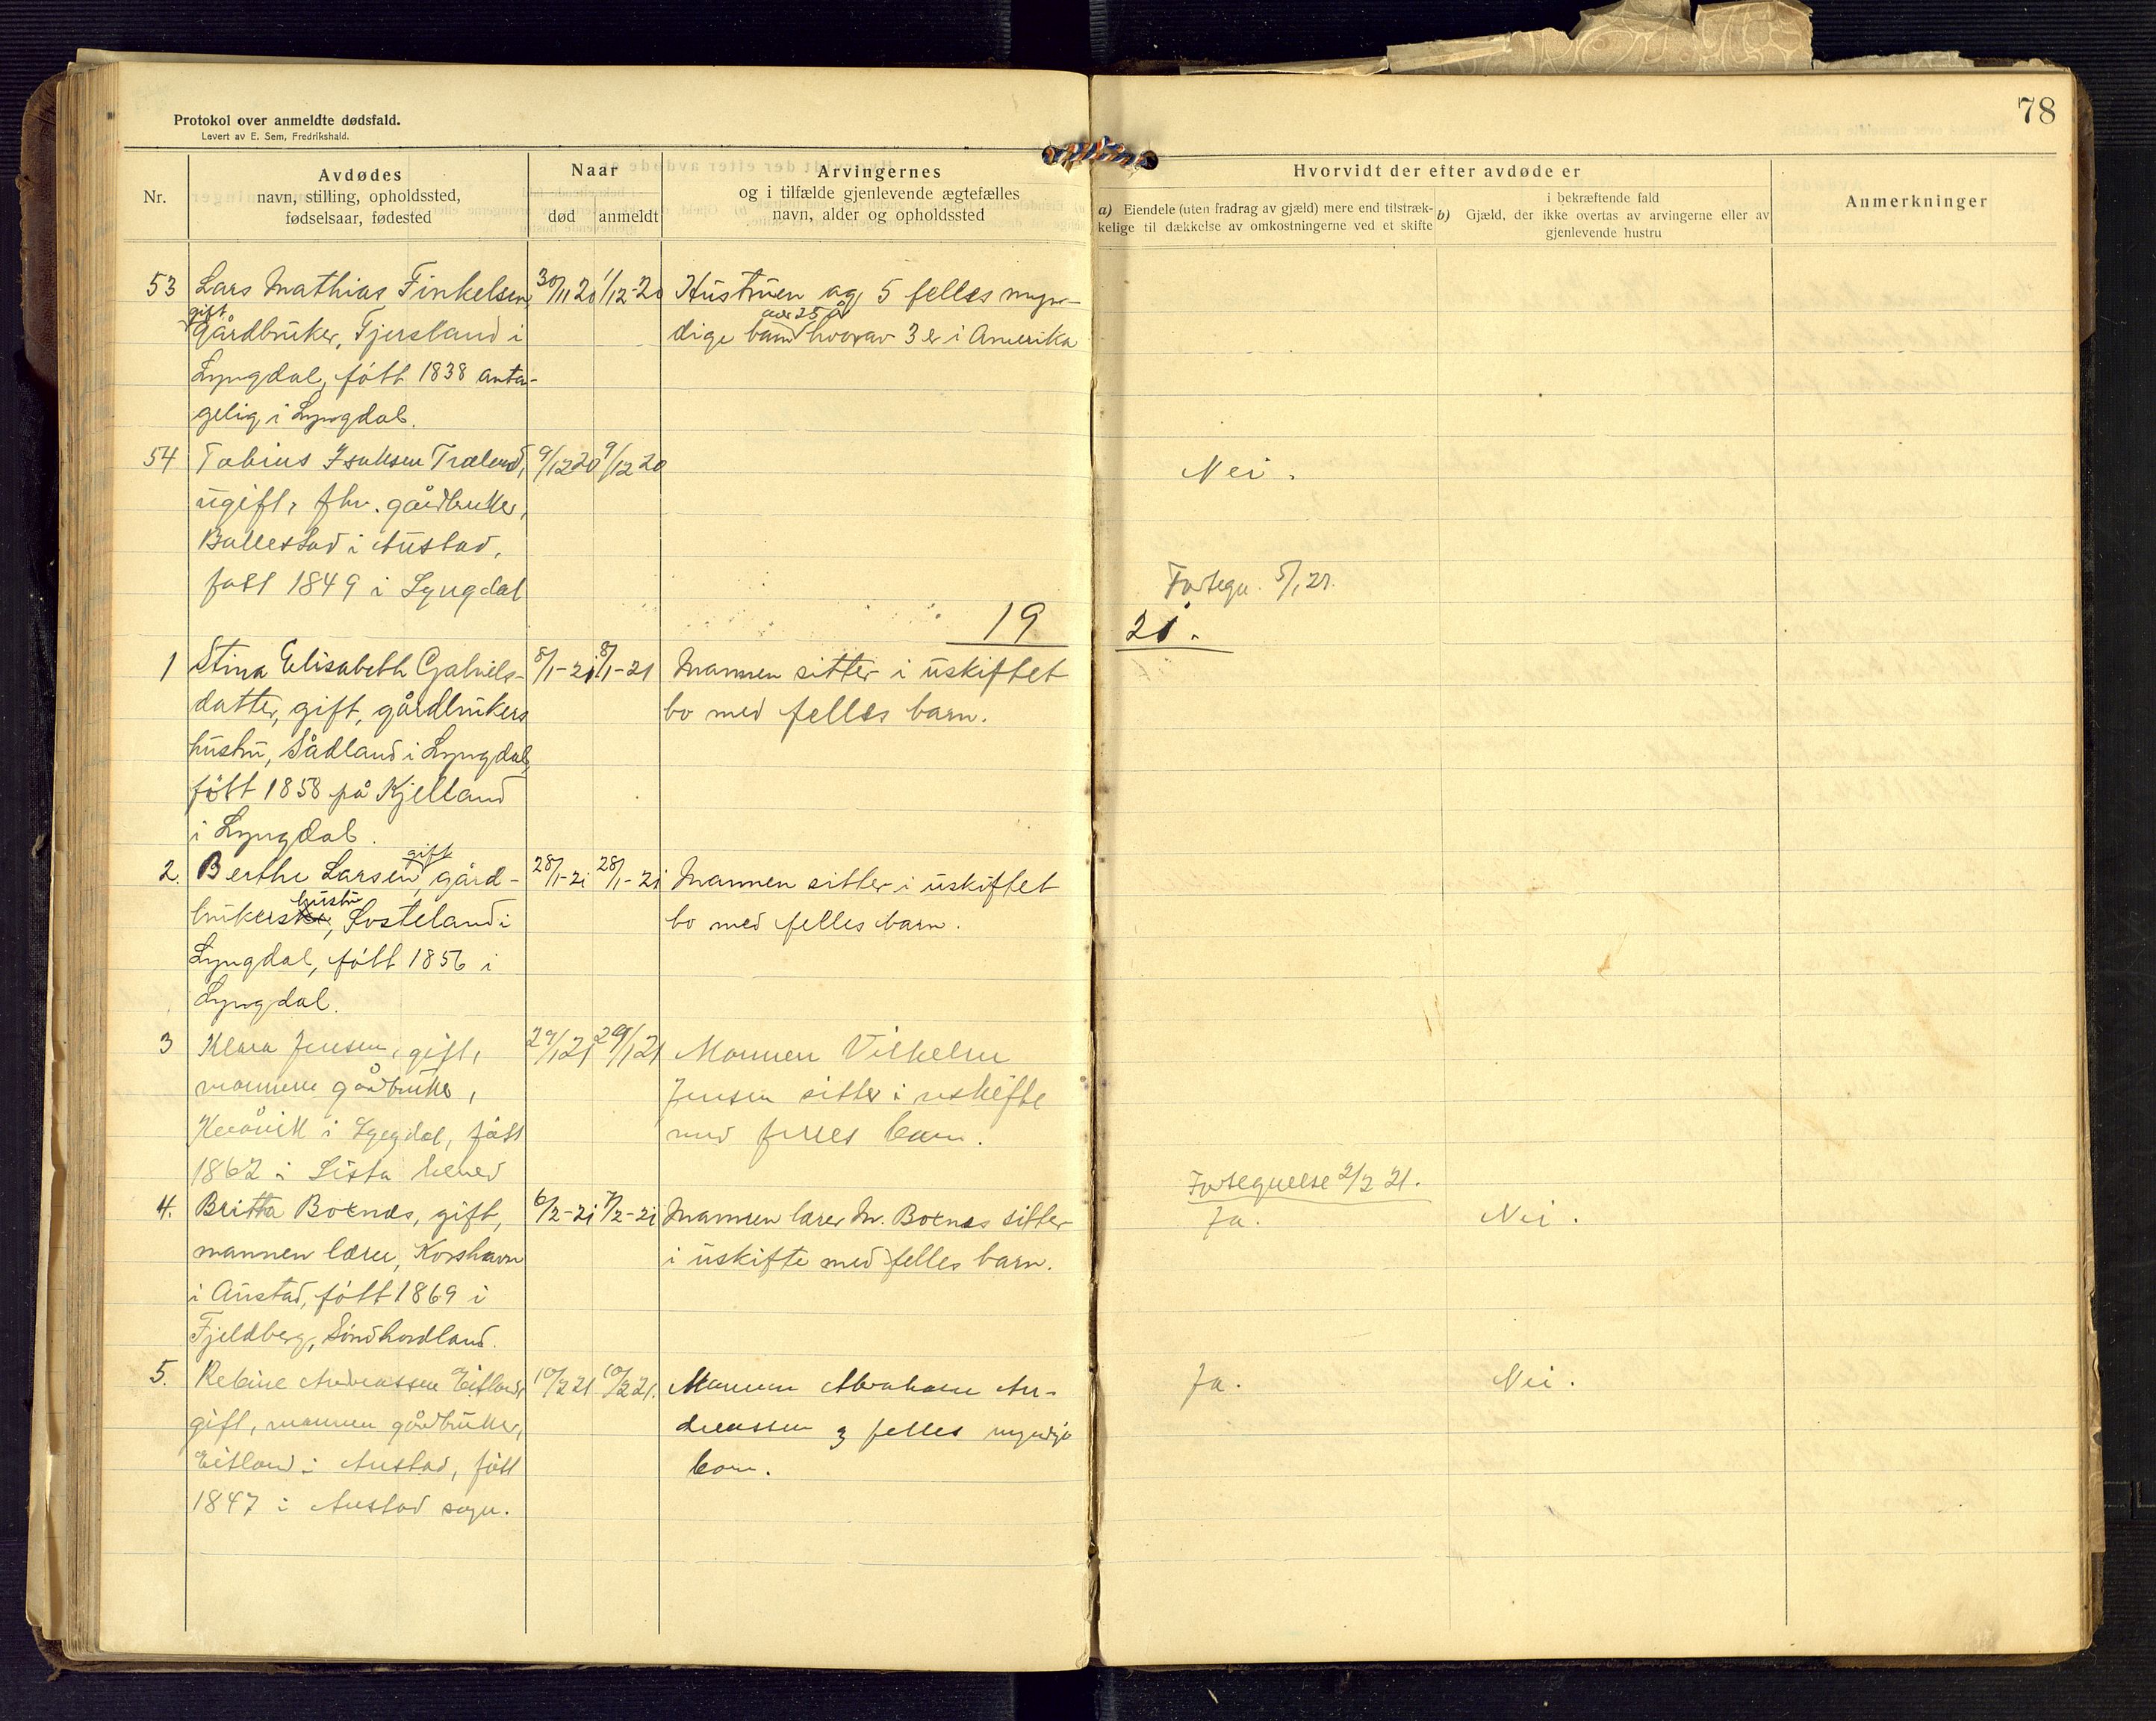 78
Protokol over anmeldte dødsfald.
Levert av E. Sem, Fredrikshald.
Nr.
Avdødes
navn, stilling, opholdssted,
fødselsaar, fødested
Naar
død
anmeldt
Arvingernes
og i tilfælde gjenlevende ægtefælles
navn, alder og opholdssted
Hvorvidt der efter avdøde er
a) Eiendele (uten fradrag av gjæld) mere end tilstræk-
kelige til dækkelse av omkostningerne ved et skifte
b) Gjæld, der i bekræftende fald
ikke overtas av arvingerne eller av
gjenlevende hustru
Anmerkninger
53 Lars Mathias Finkelsen, 30/11 20 1/12-20 Hustruen og 5 felles myn-
gift
gårdbruker, Fjersland i
over 25 år
dige barn hvorav 3 er i Amerika
Lyngdal, fött 1838 anta-
gelig i Lyngdal.
54 Tobias Isaksen Træland, 9/12 20 9/12 20 Nei.
ugift, fhv. gårdbruker,
Ballestad i Austad,
fött 1849 i Lyngdal
Fortegn. 5/1 21.
1921.
1 Stina Elisabeth Gabriels- 8/1-21 8/1-21 Mannen sitter i uskiftet
datter, gift, gårdbrukers bo med felles barn.
hustru, Sådland i Lyngdal,
fött 1858 på Kjelland
i Lyngdal.
2. Berthe Larsen, gift gård- 28/1-21 28/1-21 Mannen sitter i uskiftet
brukers hustru, Losteland i bo med felles barn.
Lyngdal, fött 1856 i
Lyngdal.
3 Klara Jensen, gift, 29/1 21 29/1 21 Mannen Vilhelm
mannen gårdbruker, Jensen sitter i uskifte
i Lyngdal, fött med felles barn.
1862 i Lista herred
Fortegnelse 2/2 21.
4. Britta Boenæs, gift, 6/2-21 7/2-21 Mannen lærer M. Boenæs sitter Ja. Nei.
mannen lærer, Korshavn i uskifte med felles barn.
i Austad, fött 1869 i
Fjeldberg, Söndhordland.
5. Rebine Andreassen Eitland, 10/2 21 10/2 21. Mannen Abraham An- Ja. Nei.
gift, mannen gårdbruker, dreassen 3 felles myndige
Eitland i Austad, fött barn.
1847 i Austad sogn.